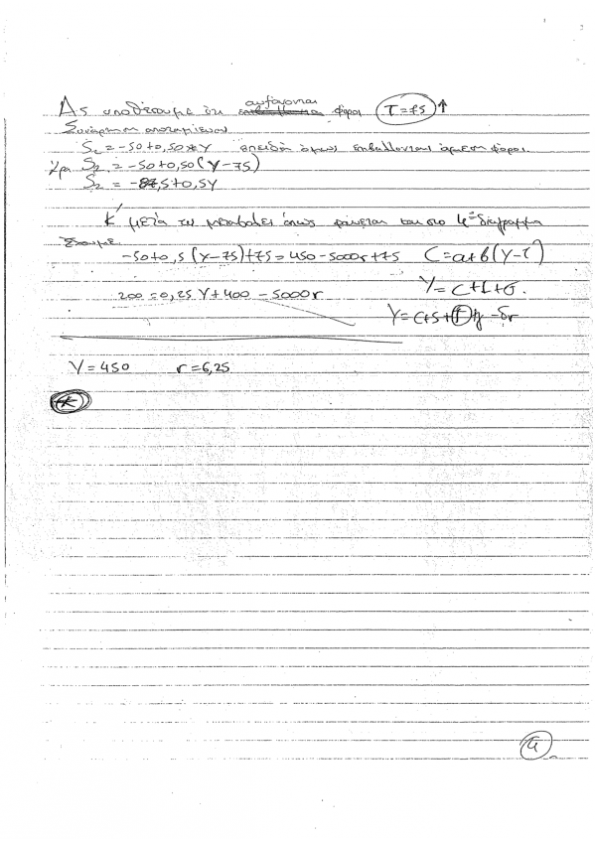 Ας υποθέσουμε ότι αυξάνονται φόροι (T=75)↑
Συνάρτηση αποταμιεύσεων
S₂ = -50+0,50*Y επειδή όμως επιβάλλονται άμεσοι φόροι
Άρα S₂ = -50+0,50(Y-75)
S₂ = -87,5+0,5Y
κ' μετά τις μεταβολές όπως φαίνεται και στο 4º διάγραμμα
Έχουμε
-50+0,5(Y-75)+75=450-5000r+75 C=a+b(Y-τ)
200=0,25Y+400-5000r Y=C+I+G.
Y=C+S+(I) -δr
Y=450 r=6,25
4